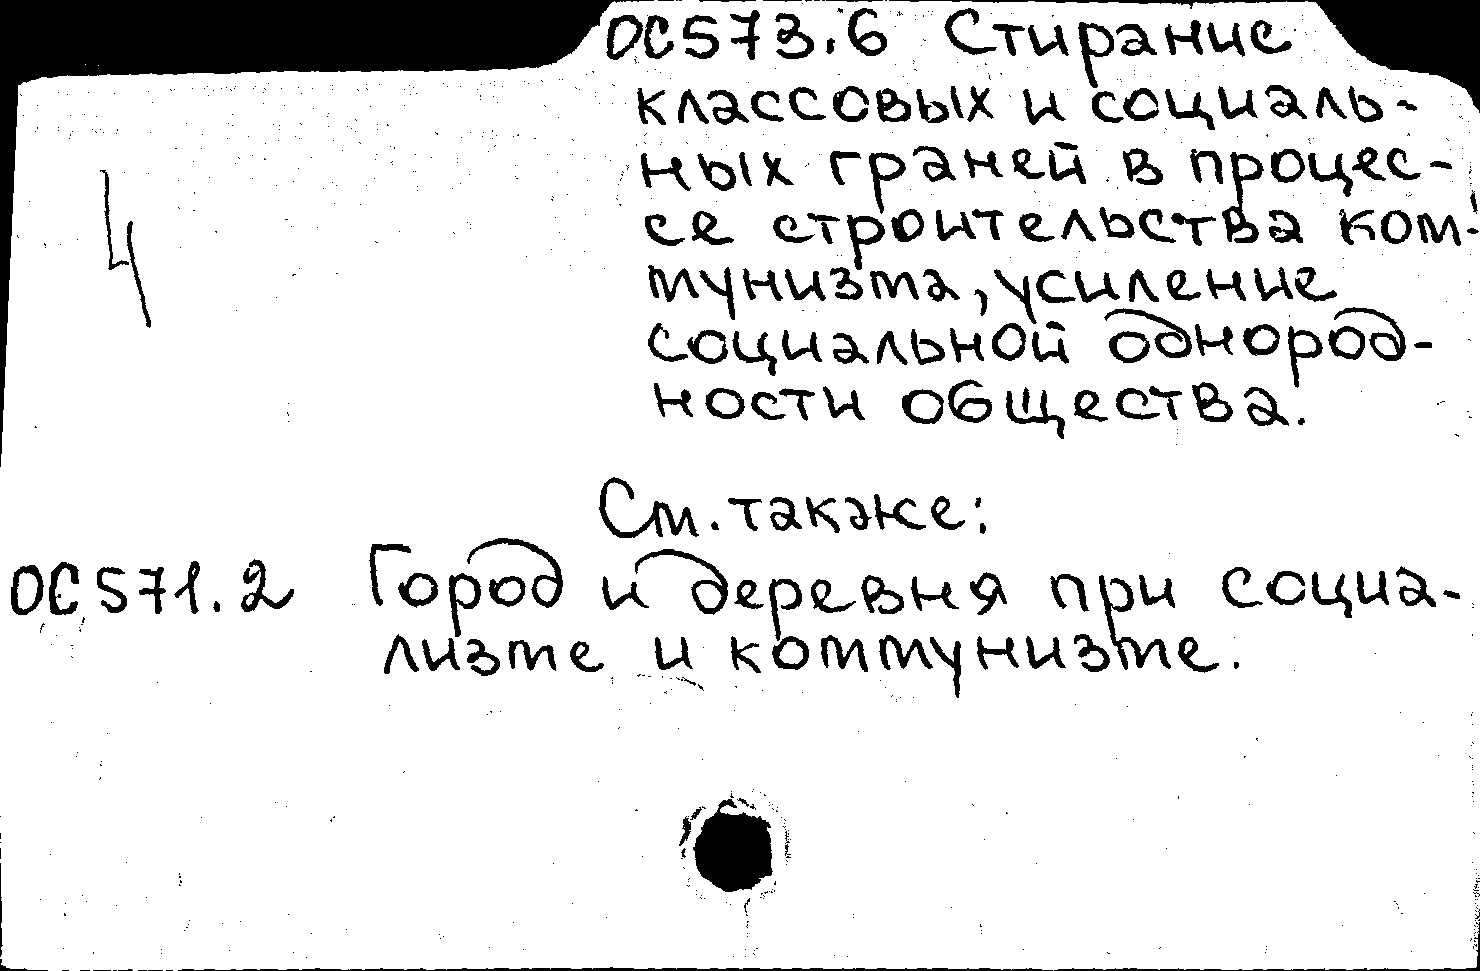 ОС573.6 Стирание
классовых и социаль-
ных граней в процес-
се строительства ком-
мунизма, усиление
социальной однород-
ности общества.
4
См. также:
ОС571.2 Город и деревня при социа-
лизме и коммунизме.